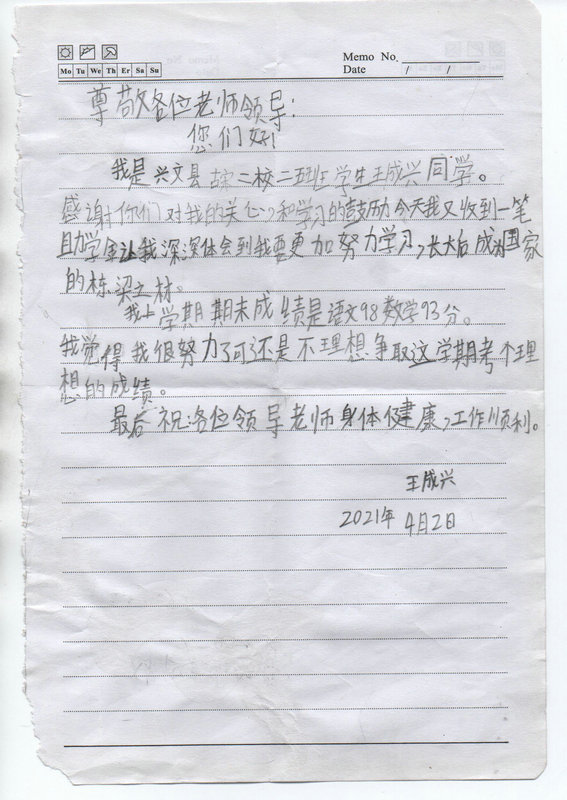 Memo No.
Mo Tu We Th Er Sa Su
Date / /
尊敬各位老师领导:
您们好!
我是兴文县古宋二校二五班学生王成兴同学。
感谢你们对我的关心,和学习的鼓励今天我又收到一笔
助学金让我深深体会到我要更加努力学习,长大后成为国家
的栋梁之林。
我上学期期末成绩是语文98数学93分。
我觉得我很努力了可还是不理想争取这学期考个理
想的成绩。
最后祝各位领导老师身体健康,工作顺利。
王成兴
2021年4月2日